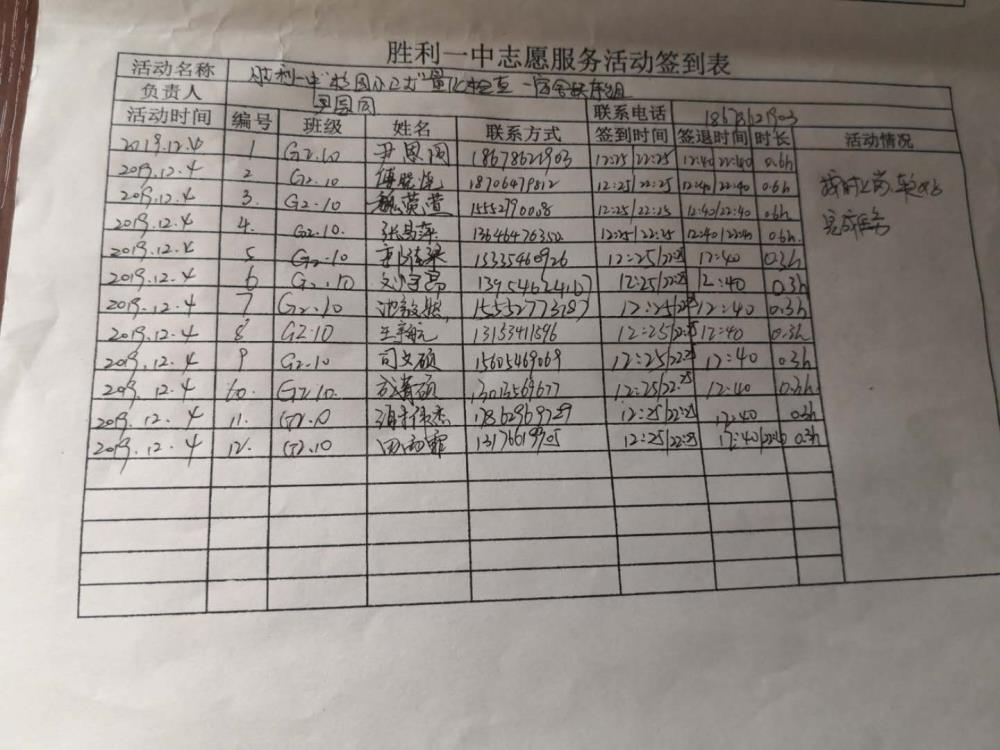 胜利一中志愿服务活动签到表
活动名称 胜利一中"校园小卫士"量化检查-宿舍秩序组
负责人 尹恩阁 联系电话 18678621903
活动时间 编号 班级 姓名 联系方式 签到时间 签退时间 时长 活动情况
2019.12.4 1 G2.10 尹恩阁 18678621903 12:25/22:25 12:40/22:40 0.6h
2019.12.4 2 G2.10 18706479812 12:25/22:25 12:40/22:40 0.6h
2019.12.4 3. G2.10 15552790008 12:25/22:25 12:40/22:40 0.6h
2019.12.4 4. G2.10. 张易萍 12:25/22:25 12:40/22:40 0.6h
2019.12.4 5 G2.10 15335460926 12:25/22:25 12:40 0.3h
2019.12.4 6 G2.10 12:25/22:25 12:40 0.3h
2019.12.4 7 G2.10 12:25/22:25 12:40 0.3h
2019.12.4 8 G2.10 13153411596 12:25/22:25 12:40 0.3h
2019.12.4 9 G2.10 司文硕 15605469069 12:25/22:25 12:40 0.3h
2019.12.4 10. G2.10. 13013569677 12:25/22:25 12:40 0.3h
2019.12.4 11. G2.10 17862969729 12:25/22:25 12:40 0.3h
2019.12.4 12. G2.10 田雨霏 12:25/22:25 12:40/22:40 0.3h
按时上岗,
完成任务